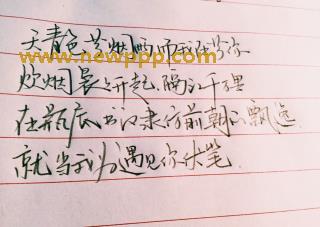 天青色等烟雨而我在等你
www.newppp.com
炊烟袅袅升起隔江千万里
在瓶底书汉隶仿前朝的飘逸
就当我为遇见你伏笔